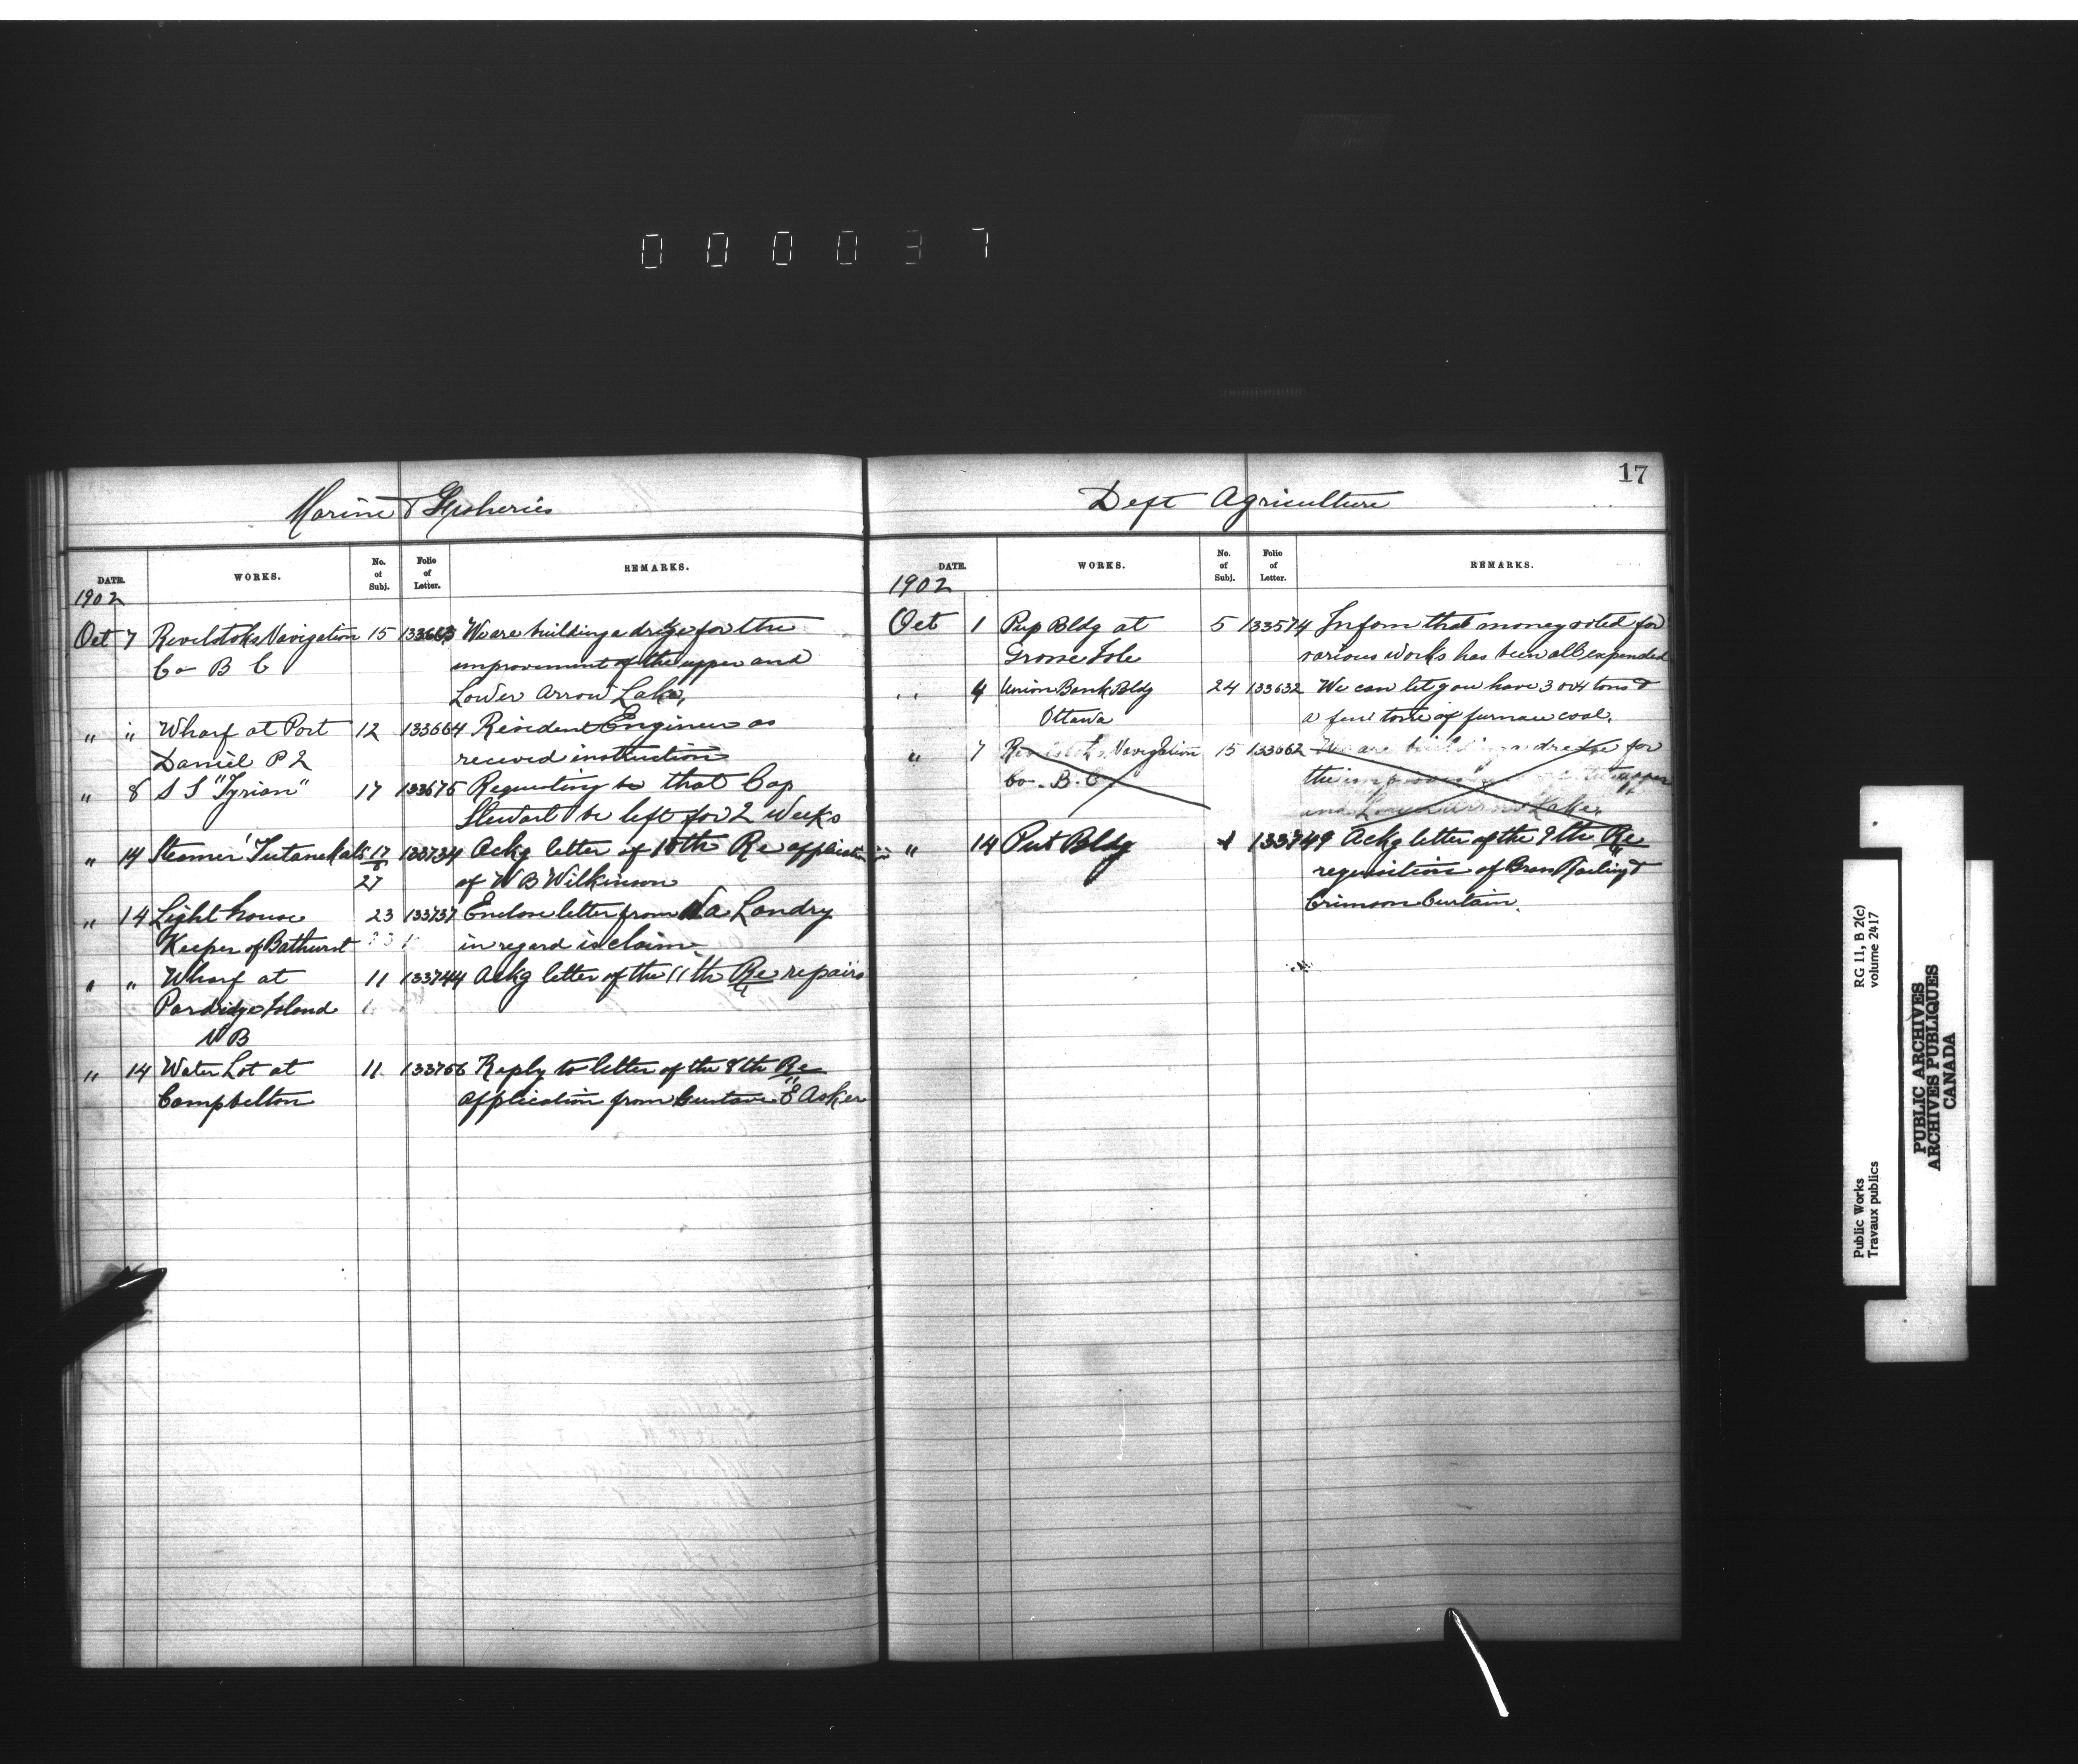 000037
17
Marine & Fisheries
DATE. WORKS. No. of Subj. Folio of Letter. REMARKS.
1902
Oct 7 Revelstoke Navigation 15 133663 We are building a dredge for the
Co B C improvement of the upper and
Lower Arrow Lake,
" " Wharf at Port 12 133664 Resident Engineer as
Daniel P2 received instruction
" 8 S S "Tyrian" 17 133675 Requesting to that Cap
Stewart be left for 2 Weeks
" 14 Steamer 17 133734 Ackg letter of 10th Re application
27 of W B Wilkinson
" 14 Light house 23 133737 Enclose letter from Landry
Keeper of Bathurst in regard is claim
" " Wharf at 11 133744 Ackg letter of the 11th Re repairs
Pardridge Island
N B
" 14 Water Lot at 11 133756 Reply to letter of the 8th Re
Campbelton application from Gustave E Asker
Dept Agriculture
DATE. WORKS. No. of Subj. Folio of Letter. REMARKS.
1902
Oct 1 Pup Bldg at 5 133574 Infom that money voted for
Grosse Isle various works has been all expended
" 4 Union Bank Bldg 24 133632 We can let you have 3 or 4 tons &
Ottawa a few tons of furnace coal.
" 7 Revelstoke Navigation 15 133662 We are building a dredge for
Co. B. C the improvement of the upper
and Lower Arrow Lake.
" 14 Put Bldg 133749 Ackg letter of the 9th Re
requisition of Brass Railing &
Crimson Curtain.
RG 11, B 2(c)
volume 2417
Public Works
Travaux publics
PUBLIC ARCHIVES
ARCHIVES PUBLIQUES
CANADA